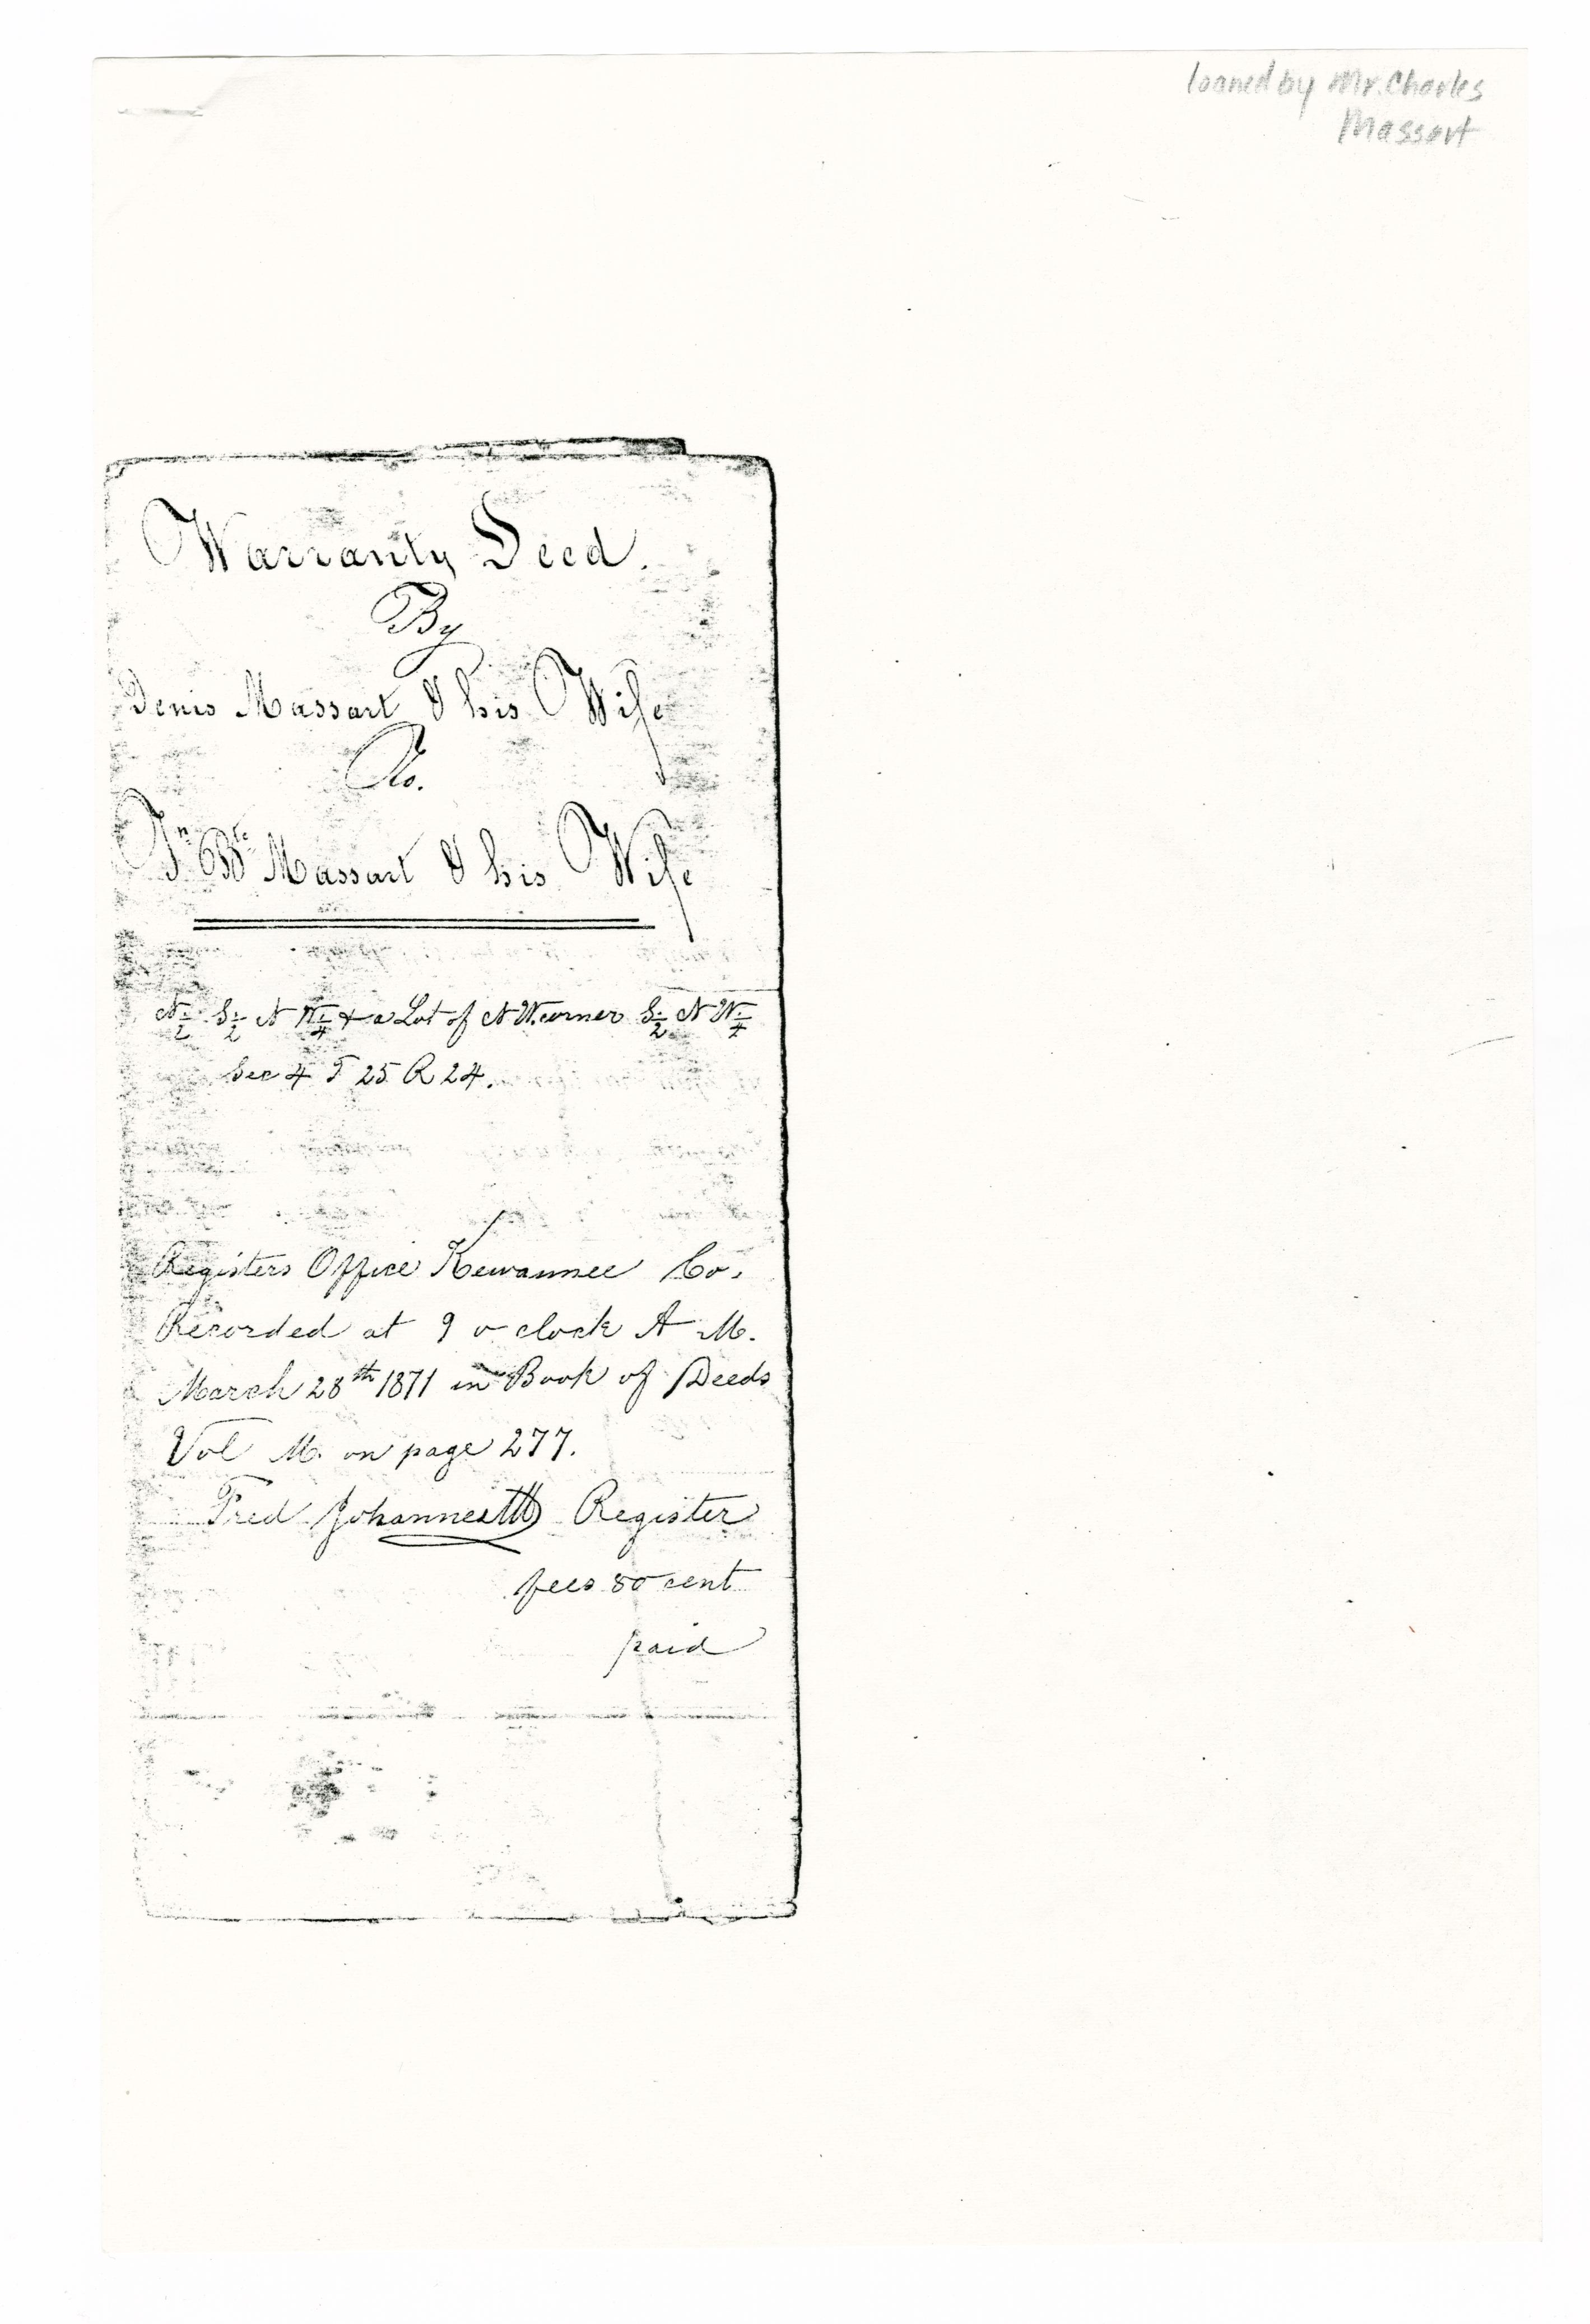 loaned by Mr. Charles
Massart
Warranty Deed.
By
Denis Massart & his Wife
To.
Jn Bte Massart & his Wife
N 1/2 S 1/2 N W 1/4 & a Lot of N W. corner S 1/2 N W 1/4
Sec 4 T 25 R 24.
Registers Office Kewaunee Co.
Recorded at 9 o clock A M.
March 28th 1871 in Book of Deeds
Vol M. on page 277.
Fred Johannes Register
fees 80 cent
paid